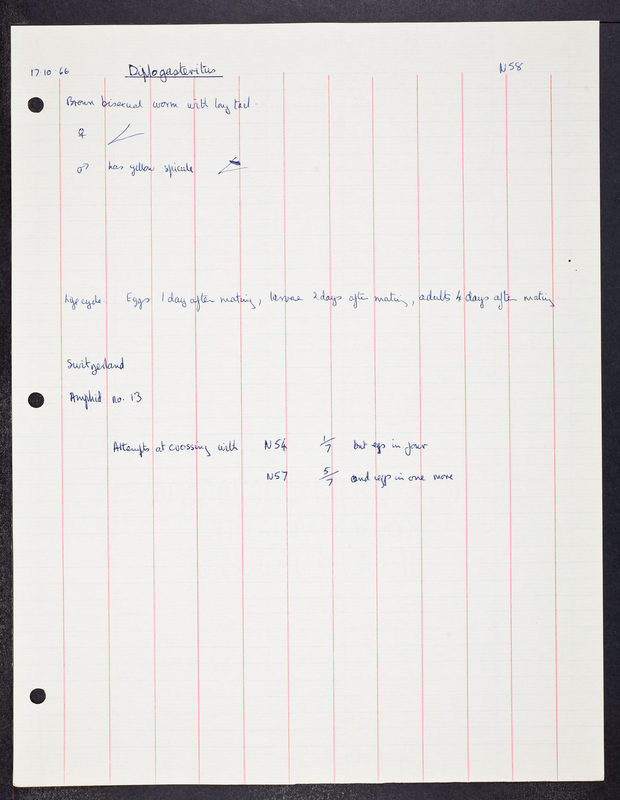 17 10 66 Diplogasteritus N58
Brown bisexual worm with long tail.
♀
♂ has yellow spicule
Life cycle Eggs 1 day after mating, larvae 2 days after mating, adults 4 days after mating
Switzerland
Amphid no. 13
Attempts at crossing with N54 1/7 but eggs in four
N57 5/7 and eggs in one more